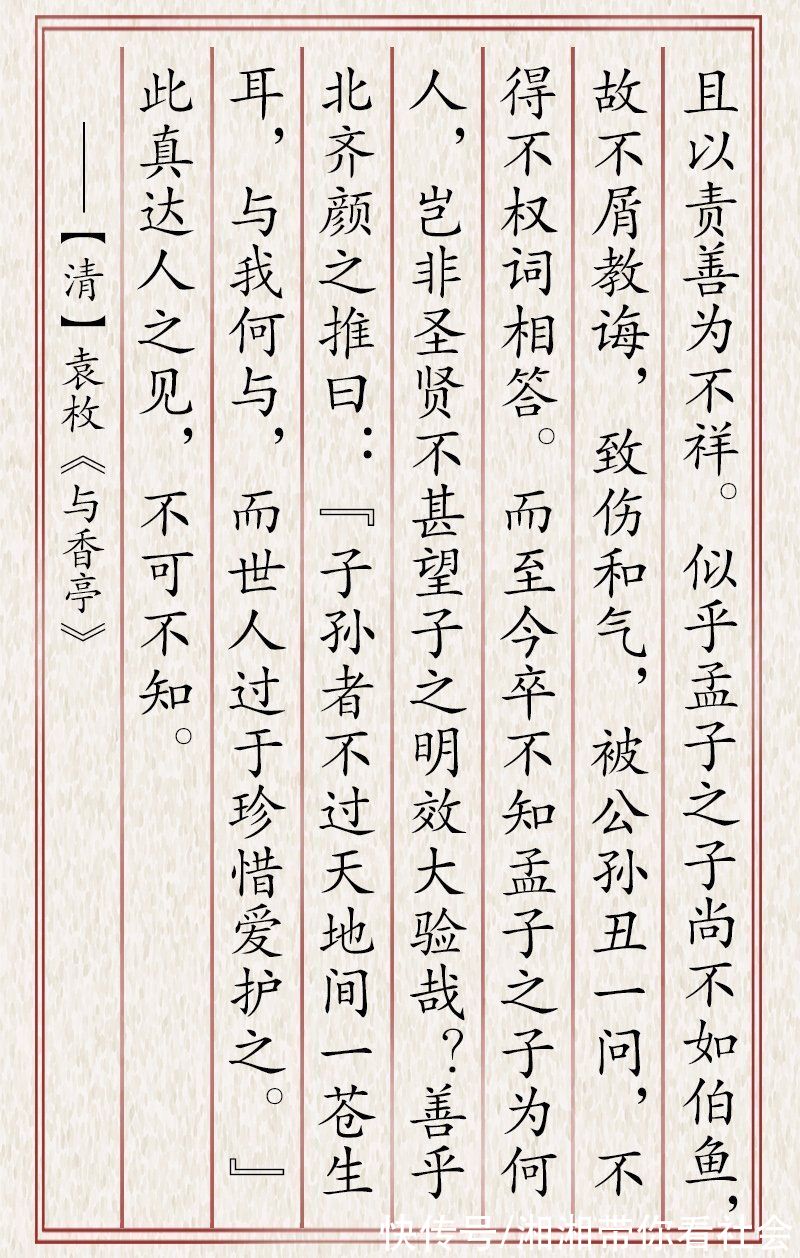 且以责善为不祥。似乎孟子之子尚不如伯鱼，
故不屑教诲，致伤和气，被公孙丑一问，不
得不权词相答。而至今卒不知孟子之子为何
人，岂非圣贤不甚望子之明效大验哉？善乎
北齐颜之推曰：『子孙者不过天地间一苍生
耳，与我何与，而世人过于珍惜爱护之。』
此真达人之见，不可不知。
——【清】袁枚《与香亭》
快传号/湘湘带你看社会